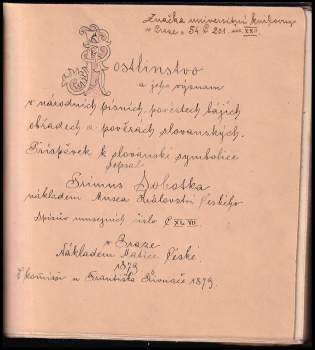 Značka universitní knihovny
v Praze = 54 C 201. XXII.
Rostlinstvo
a jeho význam
v národních písních, pověstech bájích
obřadech a pověrách slovanských.
Příspěvek k slovanské symbolice
sepsal
Primus Sobotka
nákladem Musea Království Českého
Spisův musejních číslo C XL VII.
v Praze
Nákladem Matice České.
1879
V komisí u Františka Řivnáče 1879.